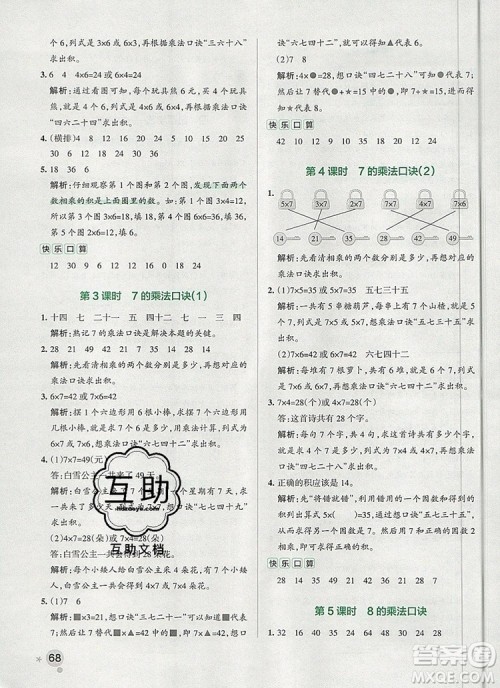 个 6,列式是 3×6 或 6×3。再根据乘法口诀“三六十八”
求出积。
3. 6 4 4×6=24 或 6×4=24
解析:通过看图可以知道,每行玩具熊有 6 个,可以摆
这样的 4 行,列式是 4×6 或 6×4。再根据乘法口诀
“四六二十四”求出积。
4. (横排) 4 8 12 16 20 24 12 18 24
30 36 30 24 18 12
5. 18 36 24
解析:仔细观察第 1 个图和第 2 个图,发现下面两个
数相乘的积是上面圈里的数。根据这个规律来填
数。第 1 个图 3×6=18,第 2 个图 6×6=36,第 3 个图
4×6=24,第 4 个图 6×2=12。
快乐口算
12 30 9 36 16 24 6 12
第 3 课时 7 的乘法口诀(1)
1. 十四 七 二十一 五 四十二 七 一 三 四
解析:熟记 7 的乘法口诀是解决本题的关键。
2. 49 15 14 42 21 35
解析:先看清相乘的两个数分别是多少,再想对应的
乘法口诀求出积。
3. 6×7=42 或 7×6=42
解析:摆 1 个六边形用 6 根小棒,摆 7 个六边形用
几根小棒,根据乘法口诀“六七四十二”求出积。
4. (1)7×7=49(元)
答:白雪公主一共
49 天。
解析:
一个星期有 7 天,7 个星期
就是
,列式为 7×7。
(2)4×7=28(朵)或 7×4=28(朵)
答:白雪公主一共
花。
解析:每个小矮人
4 朵花,7 个小矮人
送多少朵花就是 4×7 或 7×4 朵花。
5. (1)7 6
解析:■×3=21,想口诀“三七二十一”得出■代表 7。
然后让 7 代替■,7×▲=42,利用乘法口诀
“六七四十二”求出▲代表 6。
(2)7 8
解析:4×●=28,想口诀“四七二十八”得出●代表
7。然后让 7 代替●,●+★=15 变成了 7+★=15,可
以求出★代表 8。
快乐口算
30 24 42 12 49 35 16 14
第 4 课时 7 的乘法口诀(2)
1.
2×7 5×7 6×7 3×7 4×7 7×7
14 21 28 35 42 49
解析:先看清相乘的两个数分别是多少,再想对应的
乘法口诀求出积。
2. (1)7×5=35 五七三十五
解析:一共有 5 串糖葫芦,每串有 7 个,列式为 7×5
或 5×7,根据乘法口诀“五七三十五”求出积。
(2)7×6=42 六七四十二
解析:一共有 6 堆,每堆有 7 个,列式为 7×6 或 6×7,
根据乘法口诀“六七四十二”求出积。
3. 7×4=28(个)或 4×7=28(个)
答:这首诗共有 28 个字。
解析:这首诗每行有 7 个字,一共有 4 行,根据乘法
口诀“四七二十八”求出积。
4. 正确的积应该是 14。
解析:先“将错就错”,利用一个因数和错误的积求
出错误的另一个因数,然后求出正确的另一个因数,
即可求出正确的积。
快乐口算
28 14 49 21 35 42 24 36
第 5 课时 8 的乘法口诀
1. 32 16 40 48 24 56 8 64
68
互助
互助文档
MXQE.COM